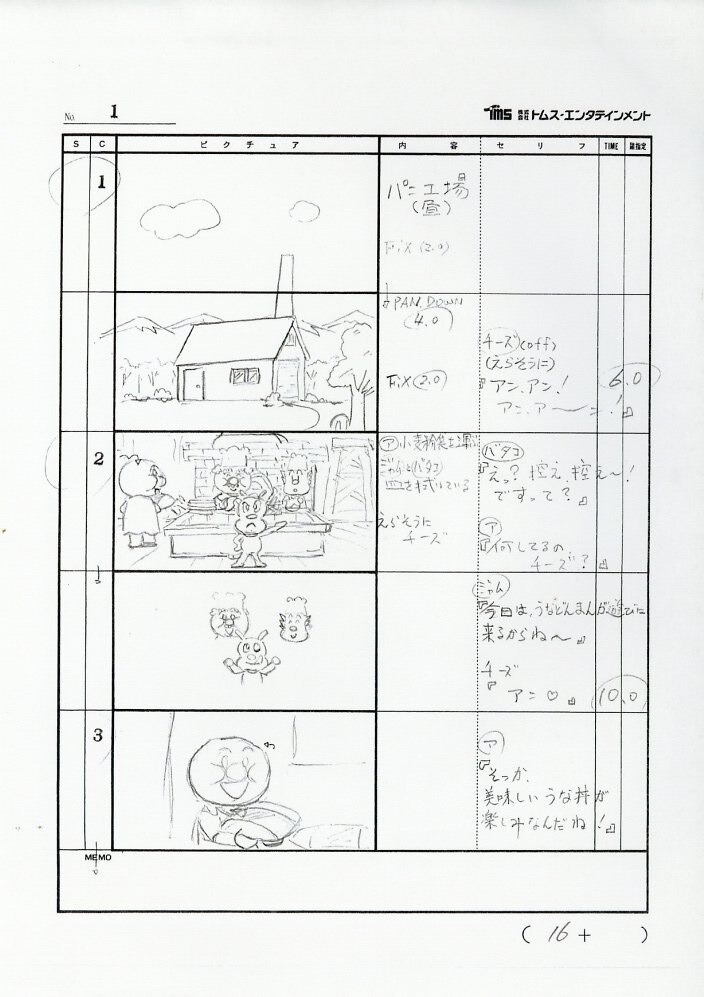 No. 1
TMS 株式会社 トムス・エンタテインメント
S C ピクチュア 内容 セリフ TIME
1
パン工場
(昼)
FiX (2.0)
↓PAN DOWN
4.0
FiX (2.0)
チーズ (off)
(えらそうに)
『アン、アン!
アン、ア〜ン!』
6.0
2
ア 小麦粉袋を運ぶ
ジャムとバタコ
皿を拭いている
えらそうに
チーズ
バタコ
『えっ? 控え、控え〜!
ですって?』
ア
『何してるの
チーズ?』
ジャム
『今日は、うなどんまんが遊びに
来るからね〜』
チーズ
『アン♡』
10.0
3
ア
『そっか、
美味しいうな丼が
楽しみなんだね!』
MEMO
( 16 + )